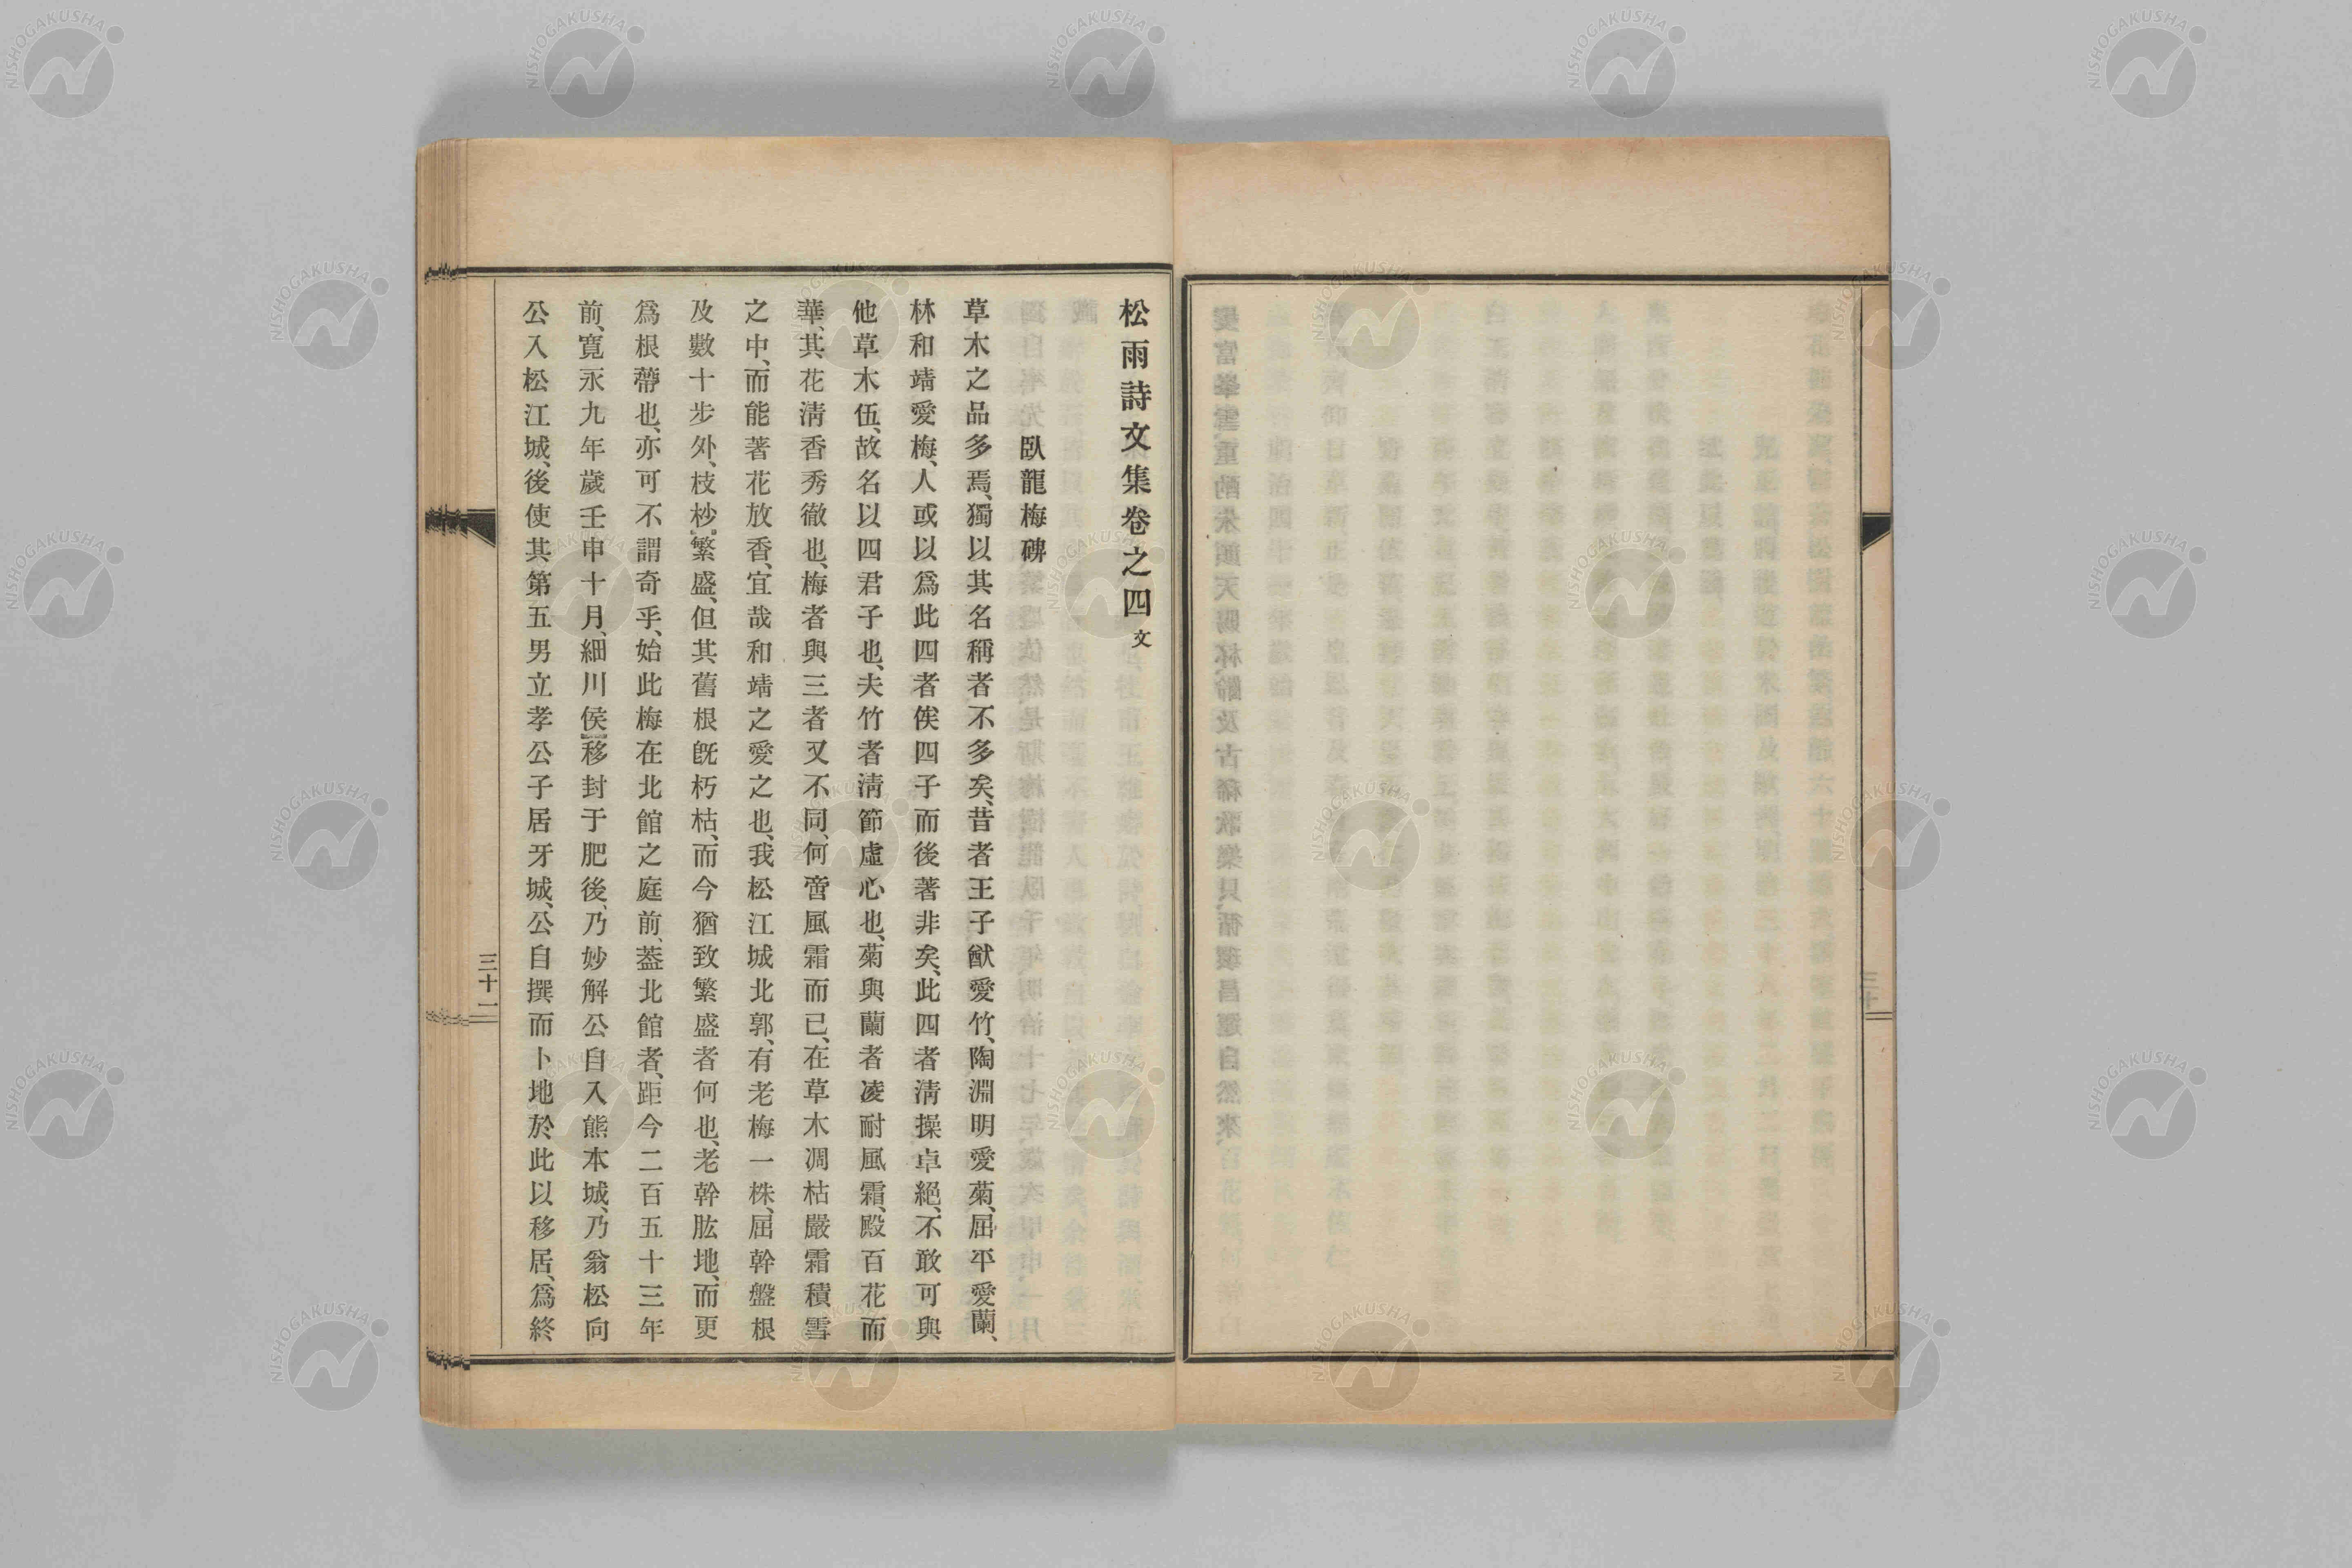 松雨詩文集卷之四 文
臥龍梅碑
草木之品多焉、獨以其名稱者、不多矣、昔者王子猷愛竹、陶淵明愛菊、屈平愛蘭、
林和靖愛梅、人或以爲此四者俟四子而後著非矣、此四者淸操卓絕、不敢可與
他草木伍、故名以四君子也、夫竹者淸節虛心也、菊與蘭者凌耐風霜、殿百花而
華、其花淸香秀徹也、梅者與三者又不同、何啻風霜而已、在草木凋枯嚴霜積雪
之中、而能著花放香、宜哉和靖之愛之也、我松江城北郭、有老梅一株、屈幹盤根
及數十步外、枝杪繁盛、但其舊根旣朽枯、而今猶致繁盛者何也、老幹肱地、而更
爲根蔕也、亦可不謂奇乎、始此梅在北館之庭前、葢北館者、距今二百五十三年
前、寬永九年歲壬申十月、細川侯移封于肥後、乃妙解公自入熊本城、乃翁松向
公入松江城、後使其第五男立孝公子居牙城、公自撰而卜地於此以移居、爲終
三十一
三十
NISHOGAKUSHA